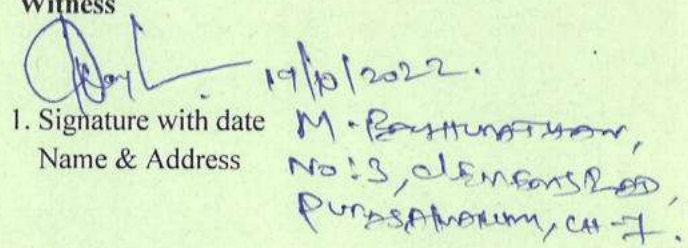 Witness
19/10/2022.
1. Signature with date M. RAGHUNATHAN,
Name & Address No: 3, CLEMENS ROAD,
PURASAWAKUM, CH-7.